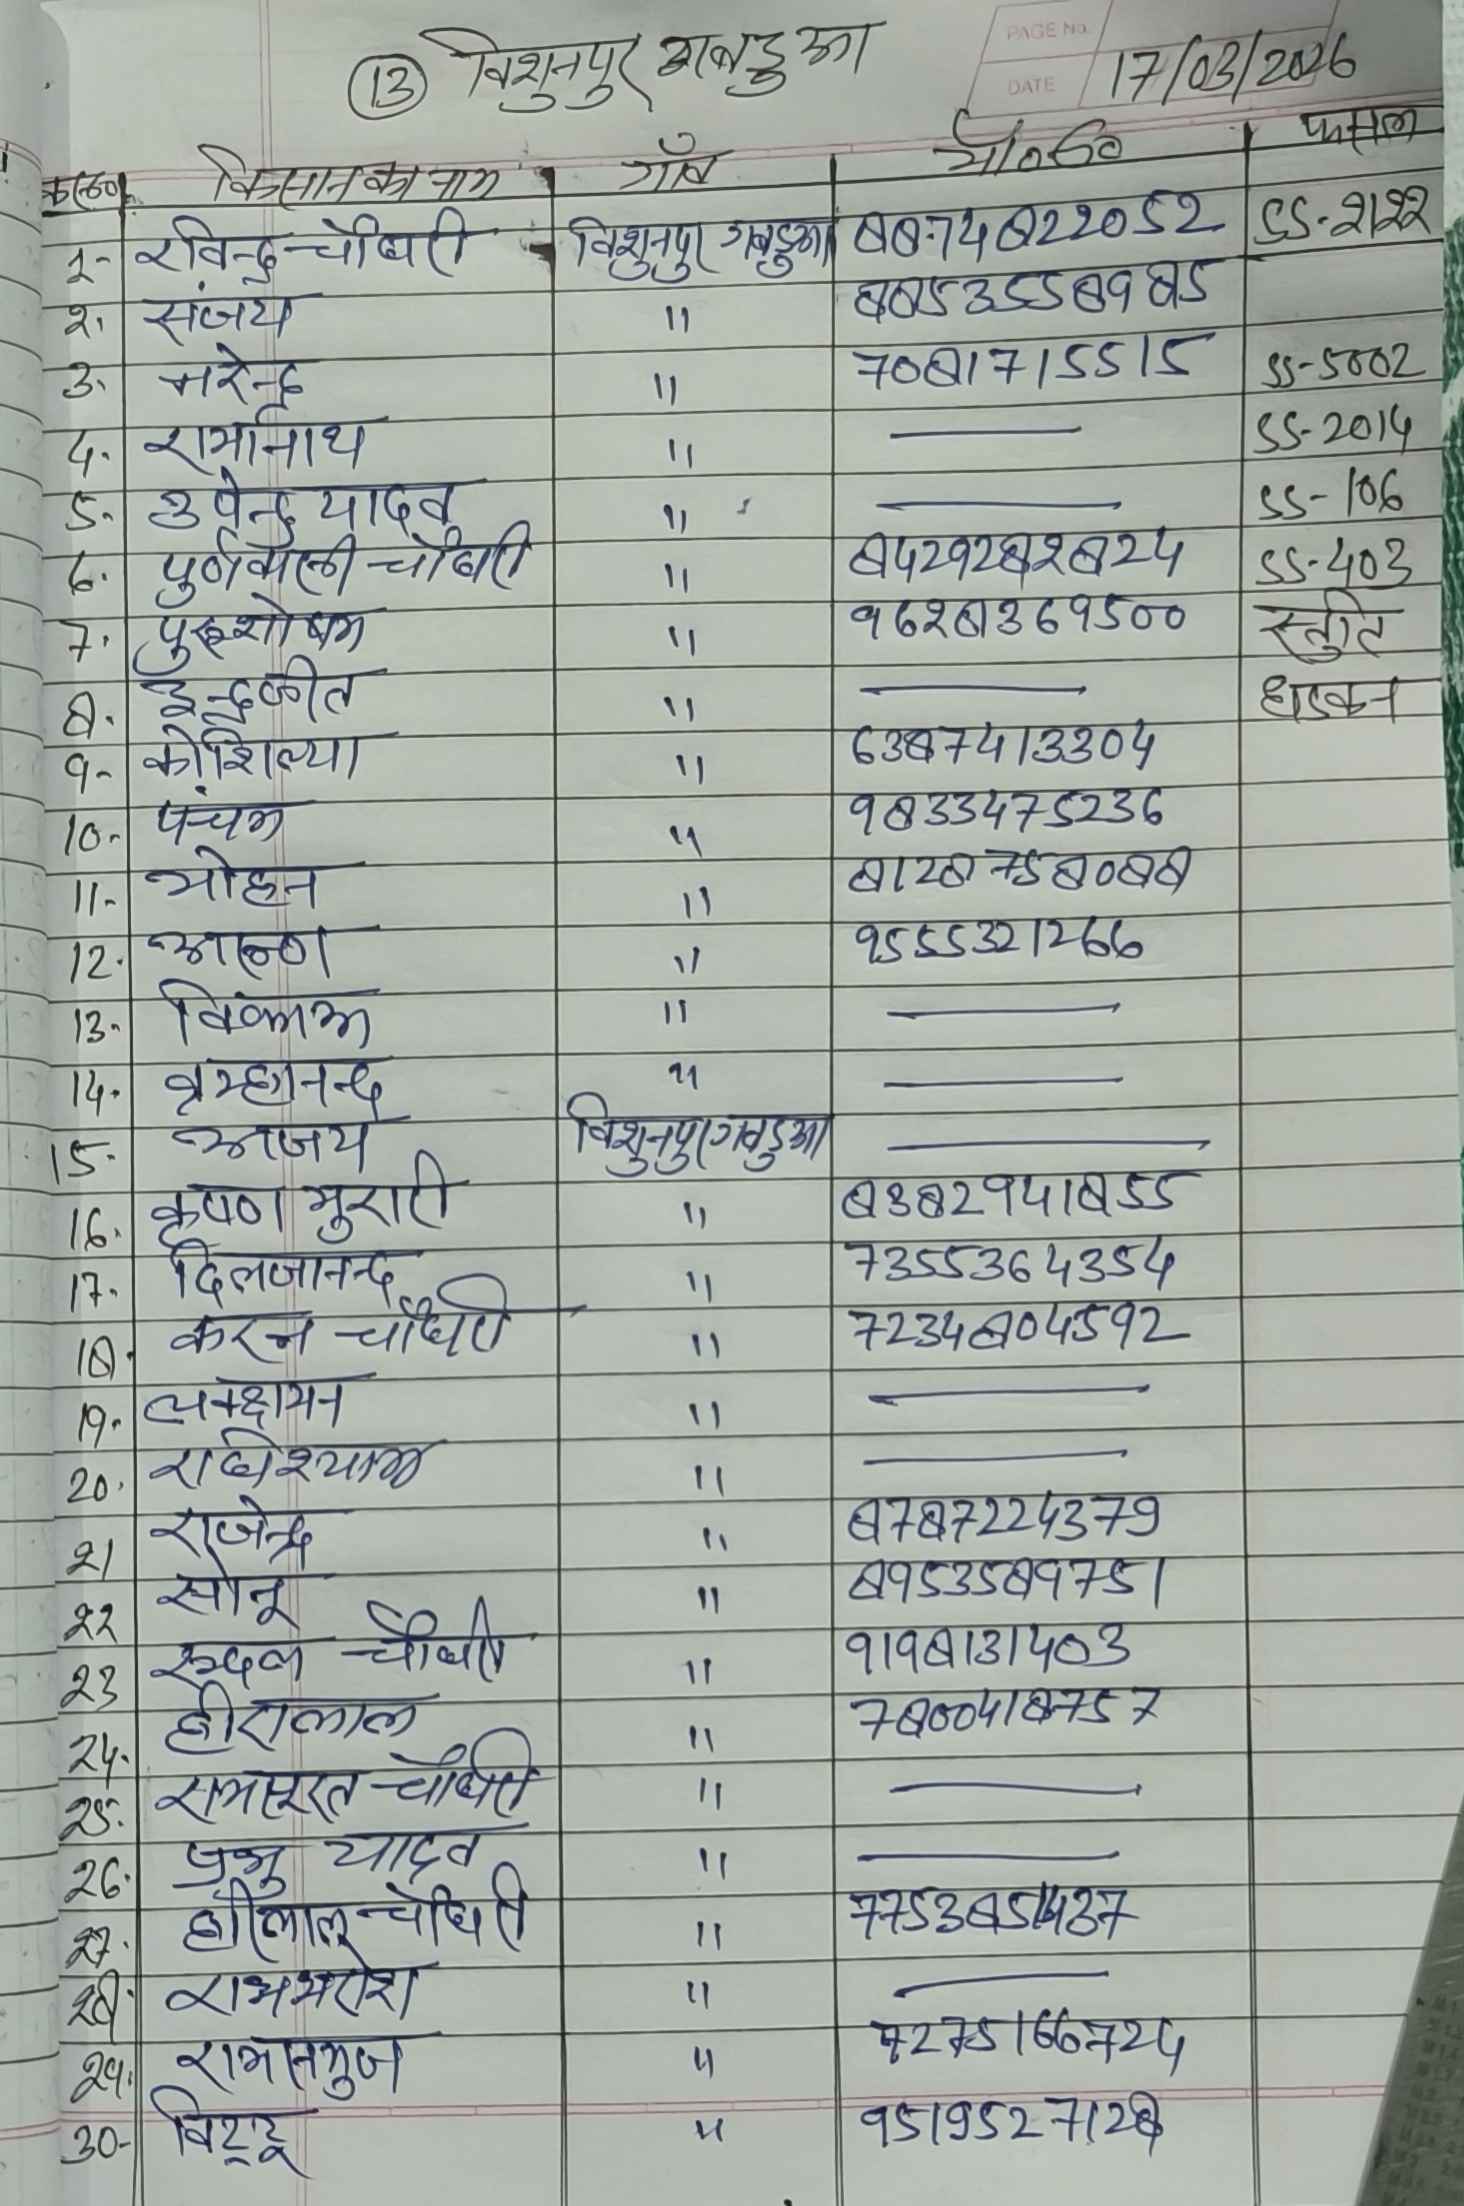 PAGE No.
DATE
⑬ विशुनपुर गबडुआ 17/03/2026
क्र०सं० किसान का नाम गाँव मो०न० फसल
1- रविन्द्र चौधरी विशुनपुर गबडुआ 8874822052 SS-2122
2. संजय " 8853558985
3. नरेन्द्र " 7081715515 SS-5002
4. रामानाथ " — SS-2014
5. उपेन्द्र यादव " — SS-106
6. पुर्णमासी चौधरी " 8429282824 SS-403
7. पुरुशोषम " 9628369500 स्तुति
8. इन्द्रजीत " — धडकन
9- कौशिल्या " 6387413304
10- पंचम " 9833475236
11- मोहन " 8128758088
12. " 9555321266
13- विक्रम " —
14. ब्रम्हानन्द " —
15- अजय विशुनपुर गबडुआ —
16. कृष्ण मुरारी " 8382941855
17. दिलजानन्द " 7355364354
18. करन चौधरी " 7234804592
19. लक्क्षमन " —
20. राधेश्याम " —
21 राजेन्द्र " 8787224379
22 सोनू " 8953589751
23 रुदल चौधरी " 9198131403
24. हीरालाल " 7800418757
25. रामसूरत चौधरी " —
26. प्रभु यादव " —
27. हीलाल चौधरी " 7753851437
28. रामभरोश " —
29. रामानुज " 7275166724
30- बिट्टू " 9519527128